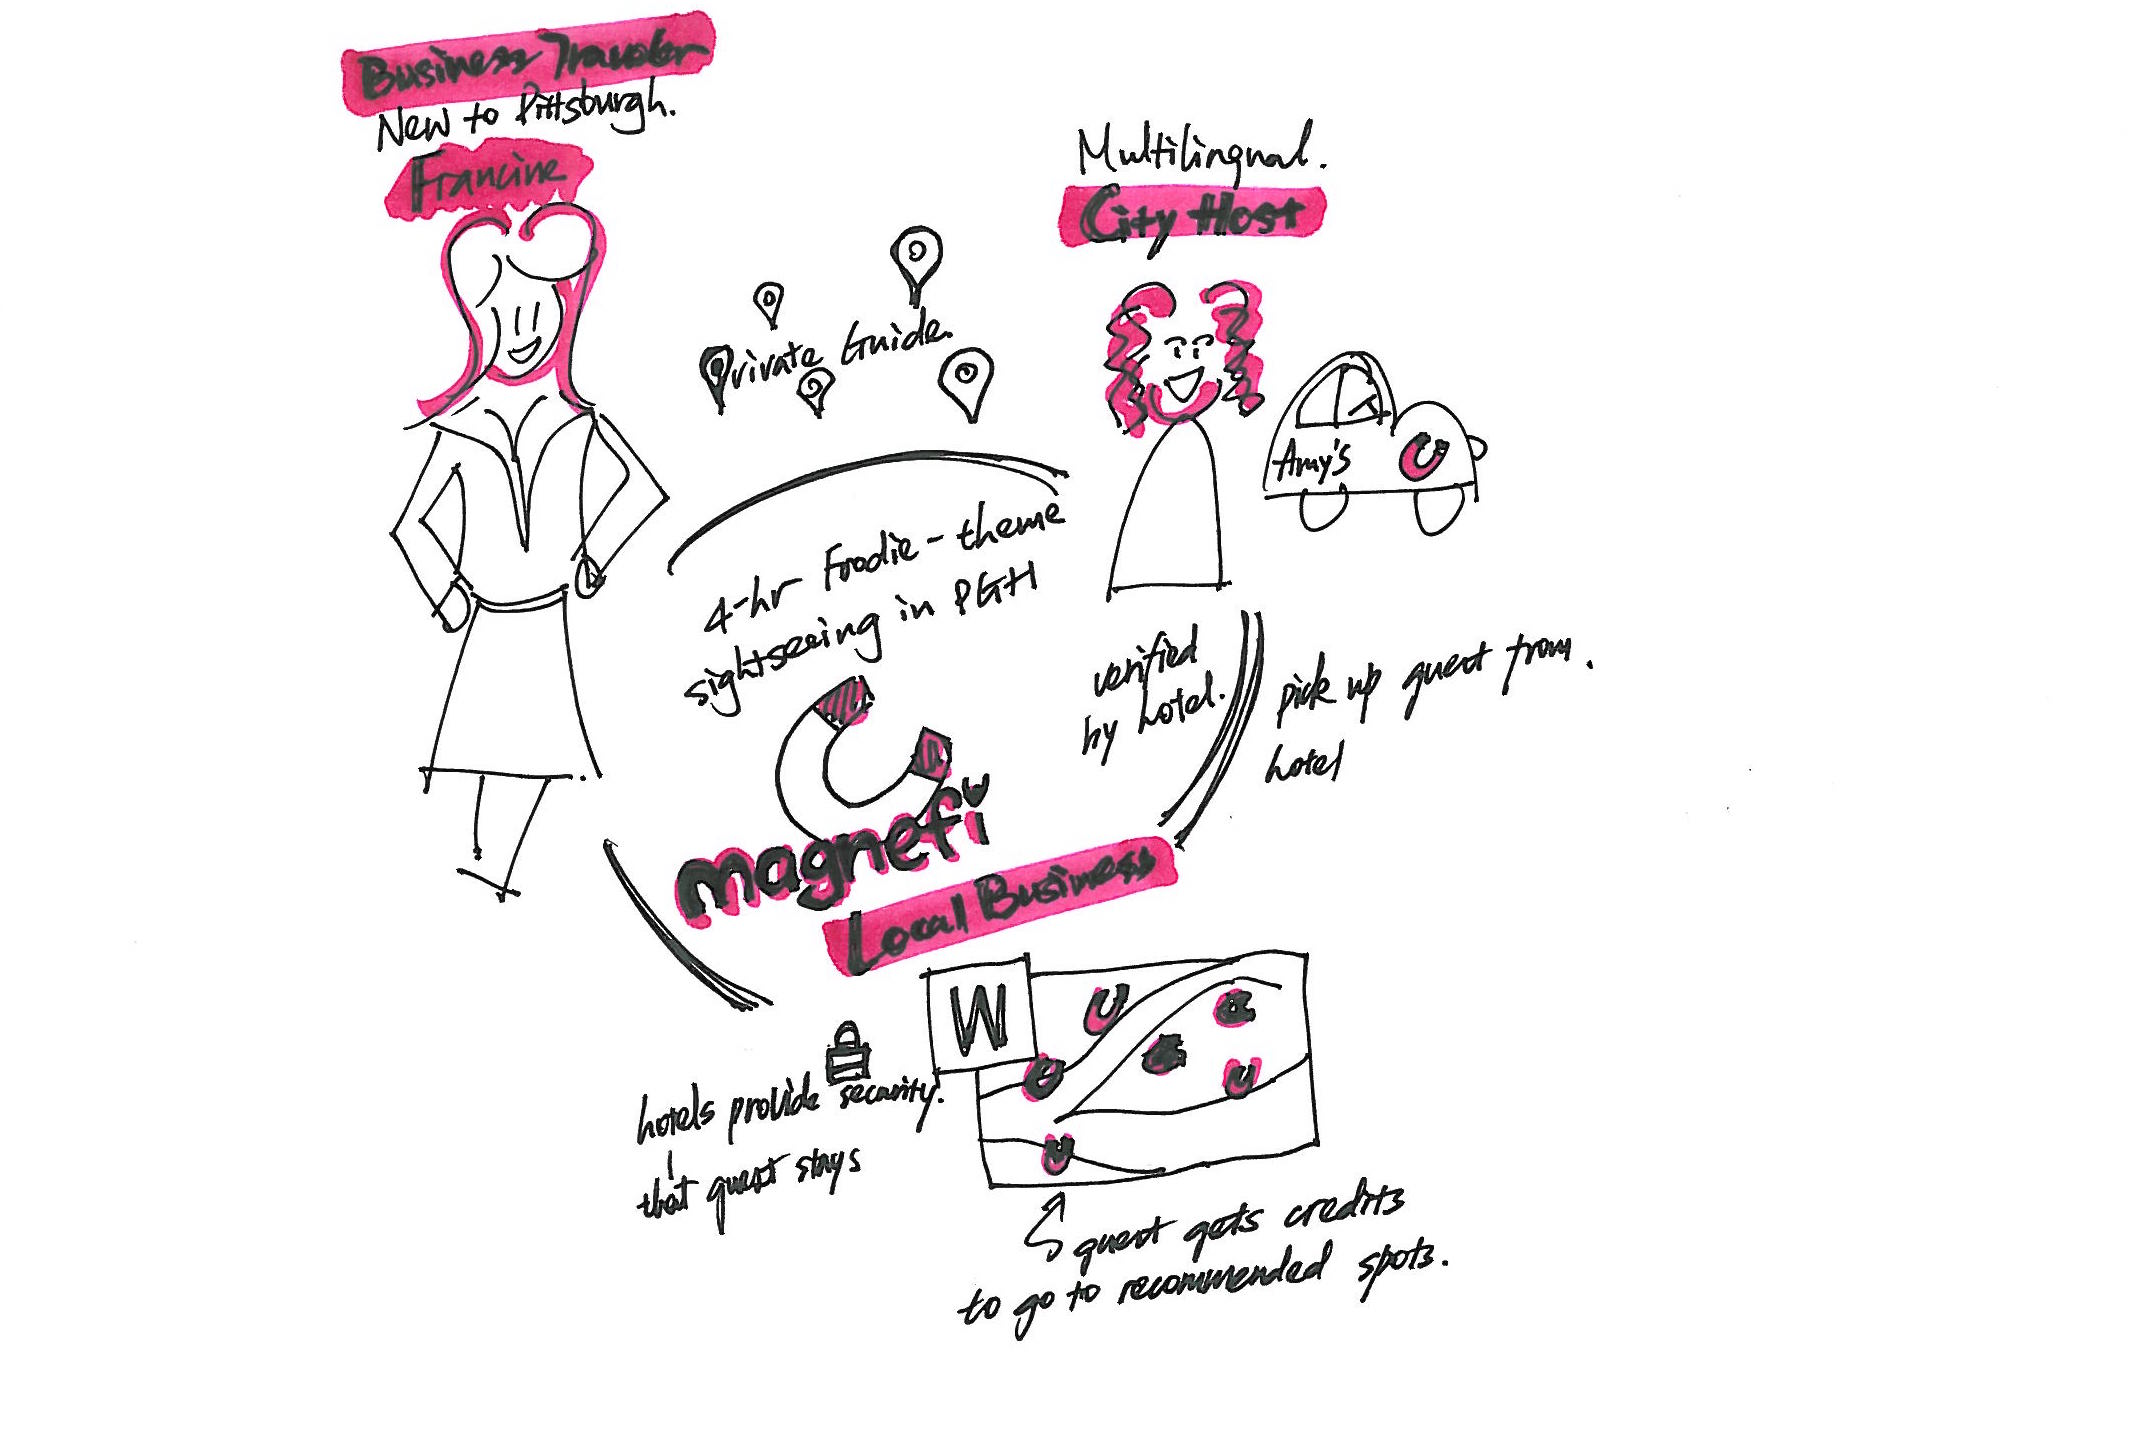 Business Traveler
New to Pittsburgh.
Francine
Private Guide.
Multilingual.
City Host
Amy's
4-hr Foodie-theme
sightseeing in PGH
verified
by hotel.
pick up guest from.
hotel
magnefi
Local Business
W
hotels provide security.
that guest stays
guest gets credits
to go to recommended spots.